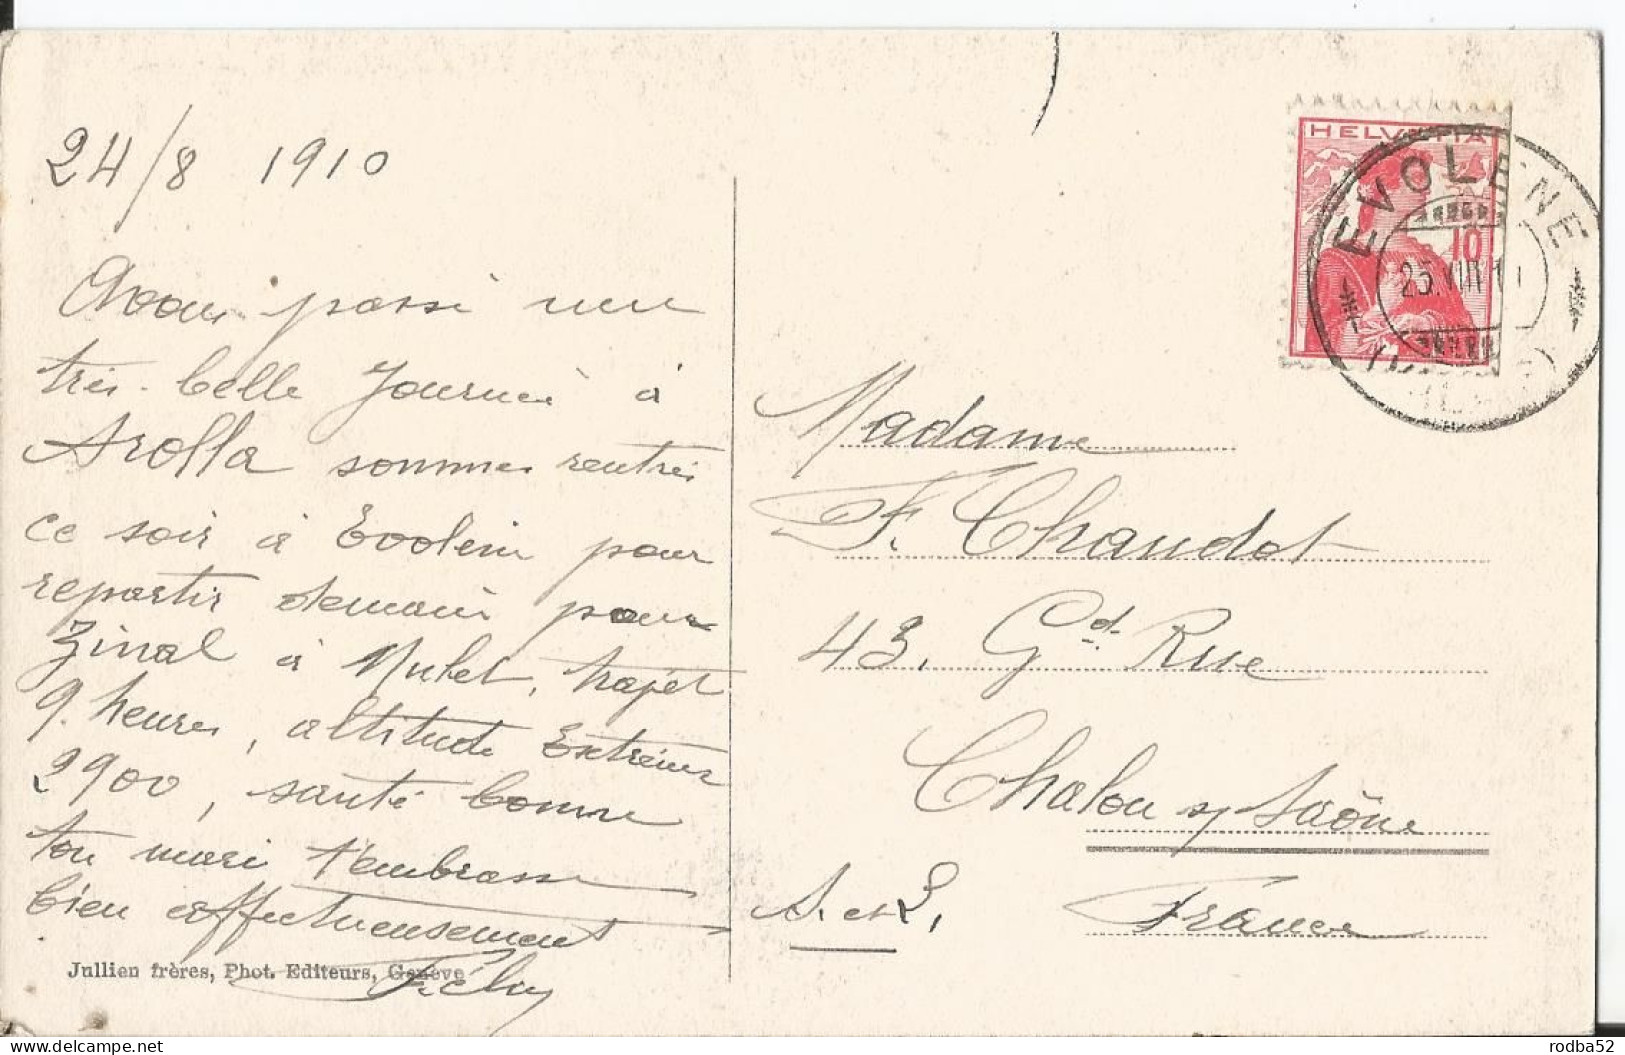 24/8 1910
Avons passé une
très belle Journée à
Arolla sommes rentrés
ce soir à Evolène pour
repartir demain pour
Zinal à Mulet, trajet
9 heures, altitude Extrême
2900, santé bonne
ton mari t'embrasse
bien affectueusement
Jullien frères, Phot. Editeurs, Genève
HELVETIA
10
EVOLÈNE
25.VIII.1
Madame
F. Chaudot
43, Gde Rue
Chalon s/ Saône
S. et L.
France
delcampe.net
rodba52